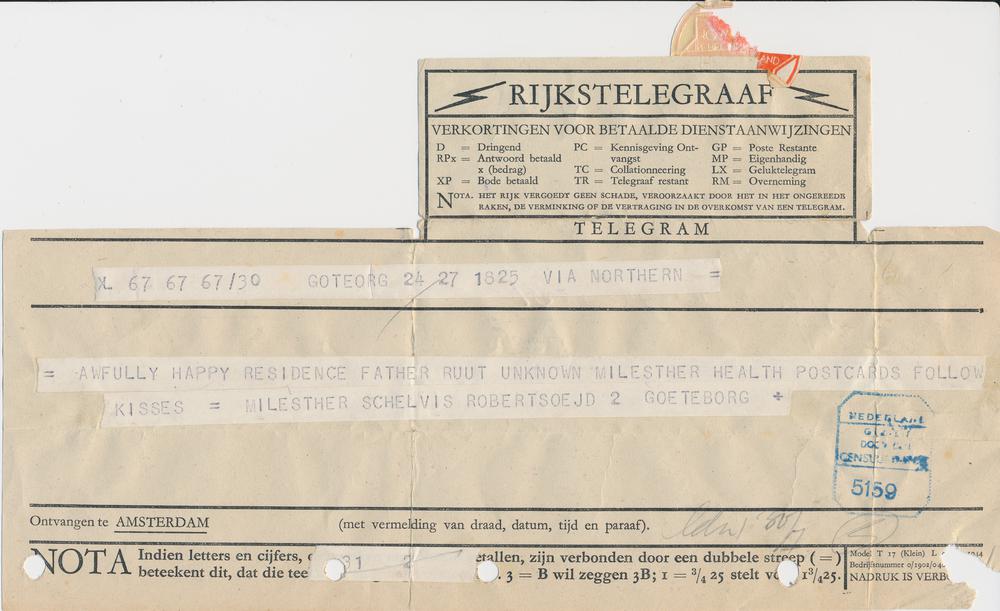 RIJKSTELEGRAAF
VERKORTINGEN VOOR BETAALDE DIENSTAANWIJZINGEN
D = Dringend
RPx = Antwoord betaald
x (bedrag)
XP = Bode betaald
PC = Kennisgeving Ont-
vangst
TC = Collationneering
TR = Telegraaf restant
GP = Poste Restante
MP = Eigenhandig
LX = Geluktelegram
RM = Overneming
NOTA. HET RIJK VERGOEDT GEEN SCHADE, VEROORZAAKT DOOR HET IN HET ONGEREEDE
RAKEN, DE VERMINKING OF DE VERTRAGING IN DE OVERKOMST VAN EEN TELEGRAM.
TELEGRAM
XL 67 67 67/30 GOTEORG 24 27 1825 VIA NORTHERN =
= AWFULLY HAPPY RESIDENCE FATHER RUUT UNKNOWN MILESTHER HEALTH POSTCARDS FOLLOW
KISSES = MILESTHER SCHELVIS ROBERTSOEJD 2 GOETEBORG +
NEDERLAND
CENSUUR
5159
Ontvangen te AMSTERDAM (met vermelding van draad, datum, tijd en paraaf).
NOTA Indien letters en cijfers, 
beteekent dit, dat die tee
31 2
etallen, zijn verbonden door een dubbele streep (=)
3 = B wil zeggen 3B; 1 = 3/4 25 stelt 1 3/4 25.
Model T 17 (Klein) L
Bedrijfsnummer 0/1902/04
NADRUK IS VERBO